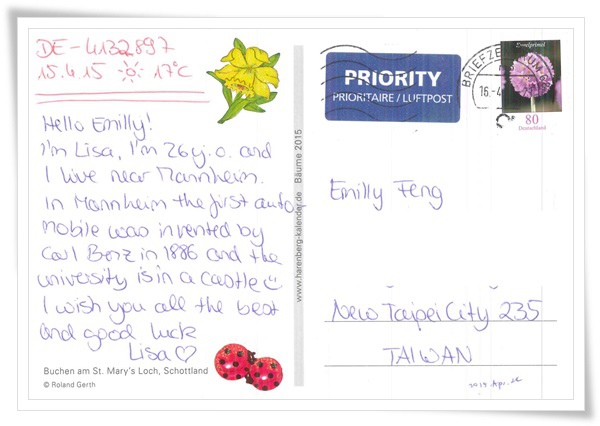 DE-4132897
15.4.15 17°C
Hello Emilly!
I'm Lisa, I'm 26 y.o. and
I live near Mannheim.
In Mannheim the first auto
mobile was invented by
Carl Benz in 1886 and the
university is in a castle
I wish you all the best
and good luck
Lisa
Buchen am St. Mary's Loch, Schottland
© Roland Gerth
www.harenberg-kalender.de Bäume 2015
PRIORITY
PRIORITAIRE / LUFTPOST
BRIEFZENTRUM
16.-4
80
Deutschland
Emilly Feng
New Taipei City 235
TAIWAN